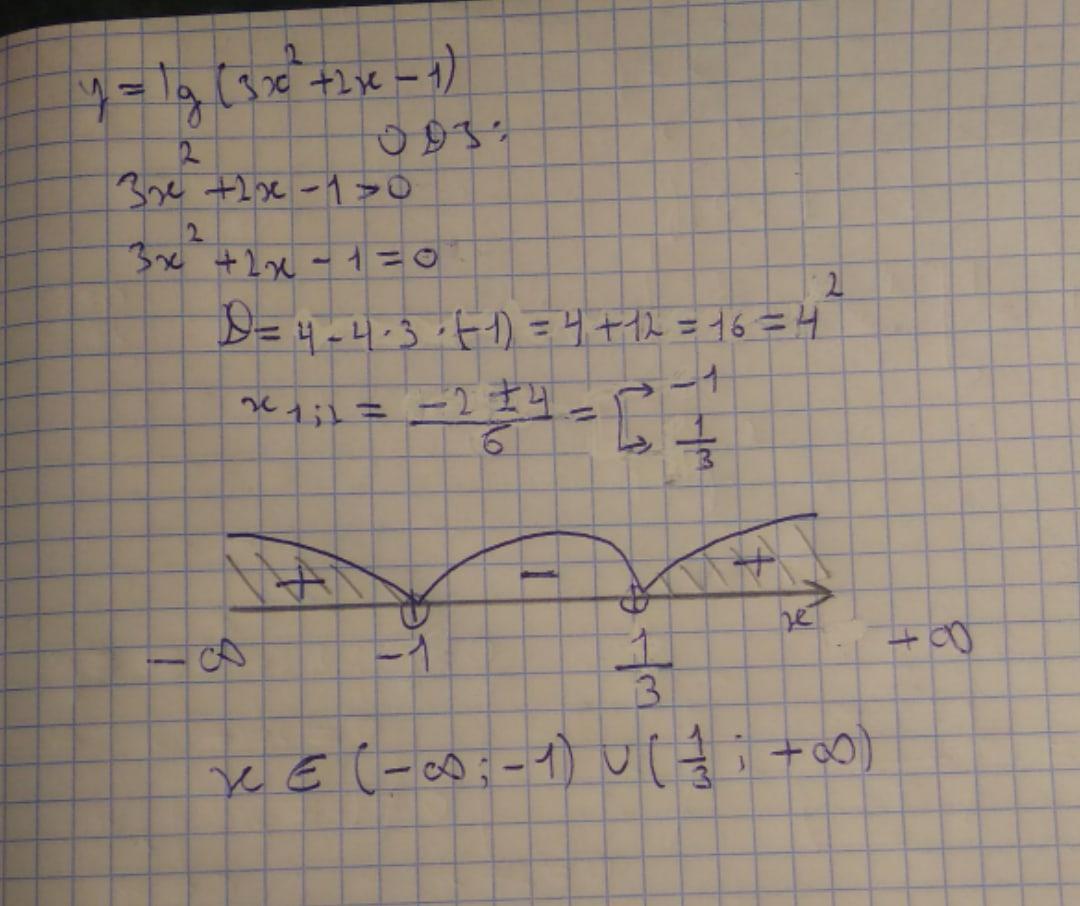 y = lg (3x² + 2x - 1)
ОДЗ:
3x² + 2x - 1 > 0
3x² + 2x - 1 = 0
D = 4 - 4 · 3 · (-1) = 4 + 12 = 16 = 4²
x₁;₂ = (-2 ± 4)/6 = [→ -1
→ 1/3
+ - +
x
-∞ -1 1/3 +∞
x ∈ (-∞; -1) ∪ (1/3; +∞)